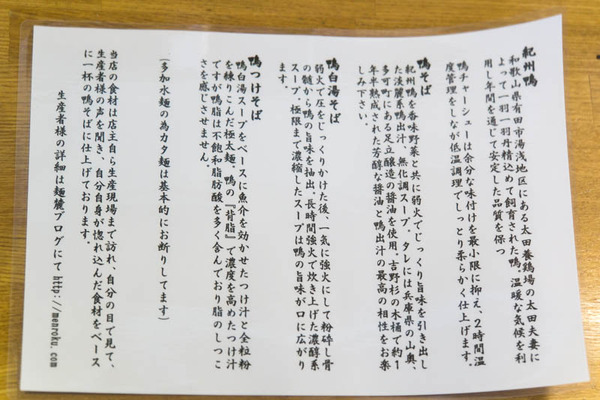 紀州鴨
和歌山県有田市湯浅地区にある太田養鶏場の太田夫妻に
よって一羽一羽丹精込めて飼育された鴨。温暖な気候を利
用し年間を通じて安定した品質を保つ
鴨チャーシューは余分な味付けを最小限に抑え、2時間温
度管理をしなが低温調理でしっとり柔らかく仕上げます。
鴨そば
紀州鴨を香味野菜と共に弱火でじっくり旨味を引き出し
た淡麗系鴨出汁、無化調スープ。タレには兵庫県の山奥、
多可町にある足立醸造の醤油を使用。吉野杉の木桶で約1
年半熟成された芳醇な醤油と鴨出汁の最高の相性をお楽
しみ下さい。
鴨白湯そば
弱火で圧をじっくりかけた後、一気に強火にして粉砕し骨
の髄から鴨の旨味を抽出。長時間強火で炊き上げた濃厚系
スープ。極限まで濃縮したスープは鴨の旨味が口に広がり
ます。
鴨つけそば
鴨白湯スープをベースに魚介を効かせたつけ汁と全粒粉
を練りこんだ極太麺、鴨の『背脂』で濃度を高めたつけ汁
ですが鴨脂は不飽和脂肪酸を多く含んでおり脂のしつこ
さを感じさせません。
(多加水麺の為カタ麺は基本的にお断りしてます)
当店の食材は店主自ら生産現場まで訪れ、自分の目で見て、
生産者様の声を聞き、自分自身が惚れ込んだ食材をベース
に一杯の鴨そばに仕上げております。
生産者様の詳細は麺麓ブログにて http://menroku.com